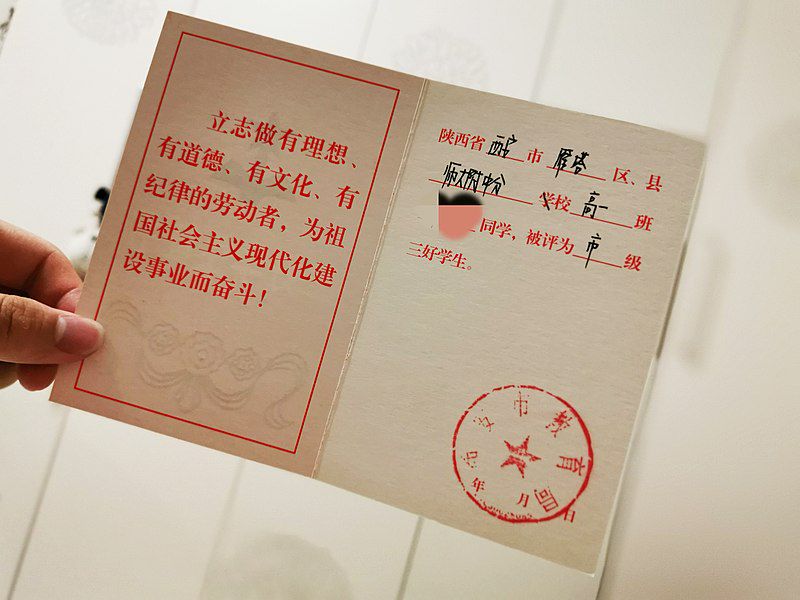 立志做有理想、
有道德、有文化、有
纪律的劳动者，为祖
国社会主义现代化建
设事业而奋斗！
陕西省西安市雁塔区、县
师大附中分学校高一班
同学，被评为市级
三好学生。
西安市教育局
年月日